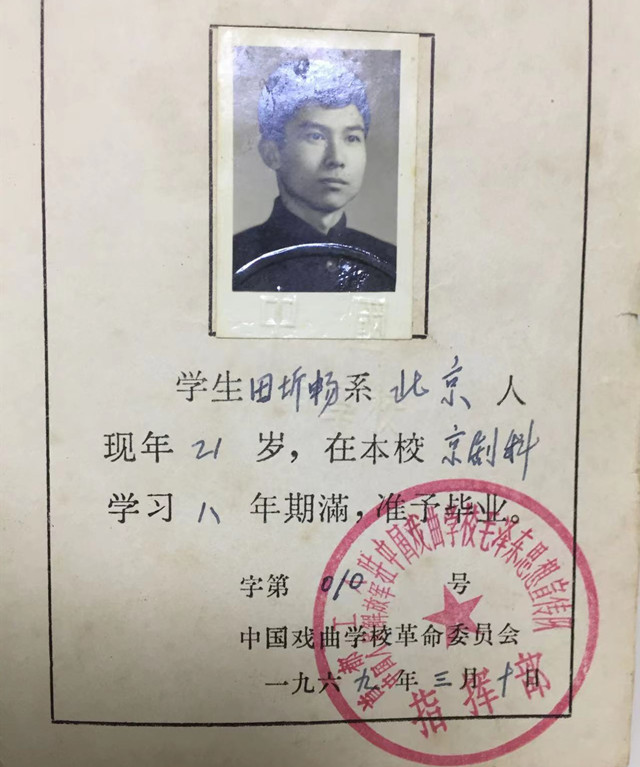 学生田圻畅系北京人
现年21岁，在本校京剧科
学习八年期滿，准予毕业。
字第010号
中国戏曲学校革命委员会
一九六九年三月十日
驻中国戏曲学校毛泽东思想宣传队
指挥部